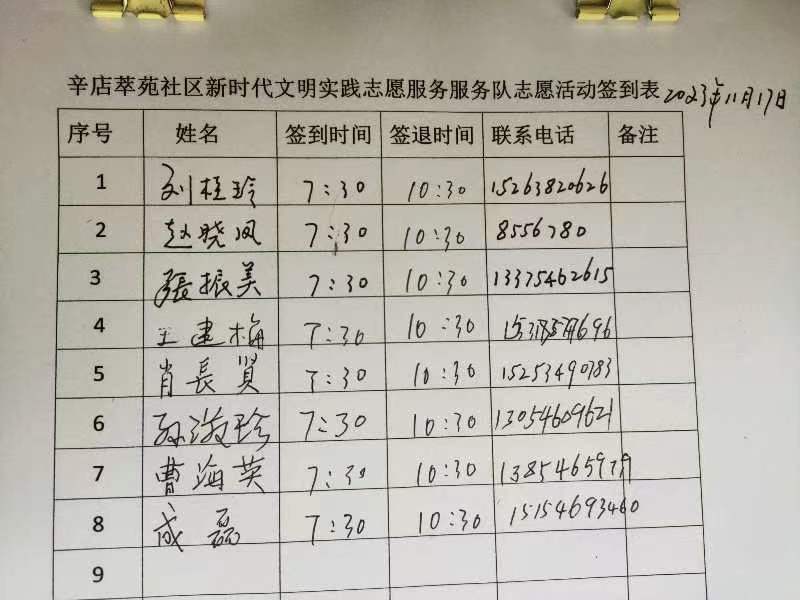 辛店萃苑社区新时代文明实践志愿服务服务队志愿活动签到表 2023年11月17日
序号 姓名 签到时间 签退时间 联系电话 备注
1 刘桂玲 7:30 10:30 15263820626
2 赵晓凤 7:30 10:30 8556780
3 張振美 7:30 10:30 13375462615
4 王建梅 7:30 10:30
5 肖長賢 7:30 10:30 15253490783
6 孙淑珍 7:30 10:30 13054609621
7 曹海英 7:30 10:30
8 成磊 7:30 10:30 15154693460
9